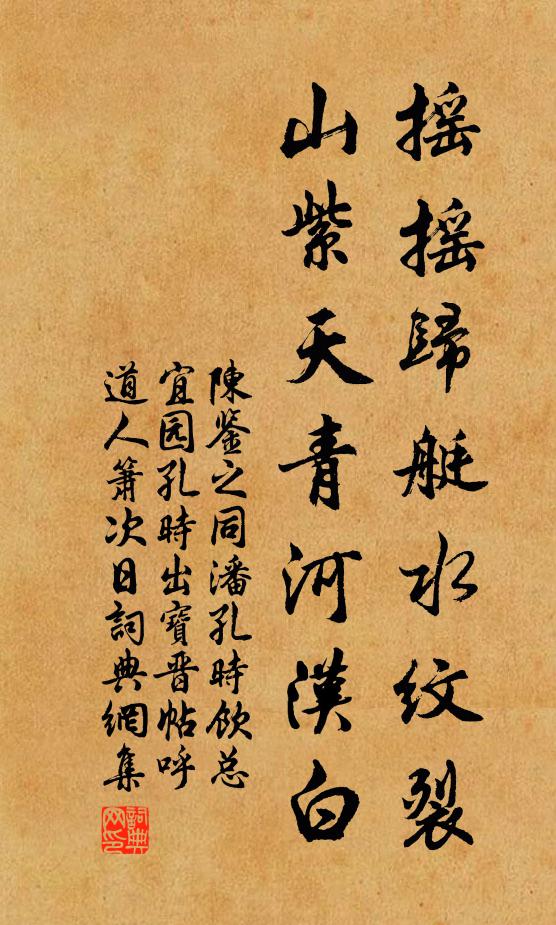 摇摇歸艇水纹裂
山紫天青河漢白
陳鉴之同潘孔時飲总
宜园孔時出寶晋帖呼
道人簫次日詞典網集
詞典网印